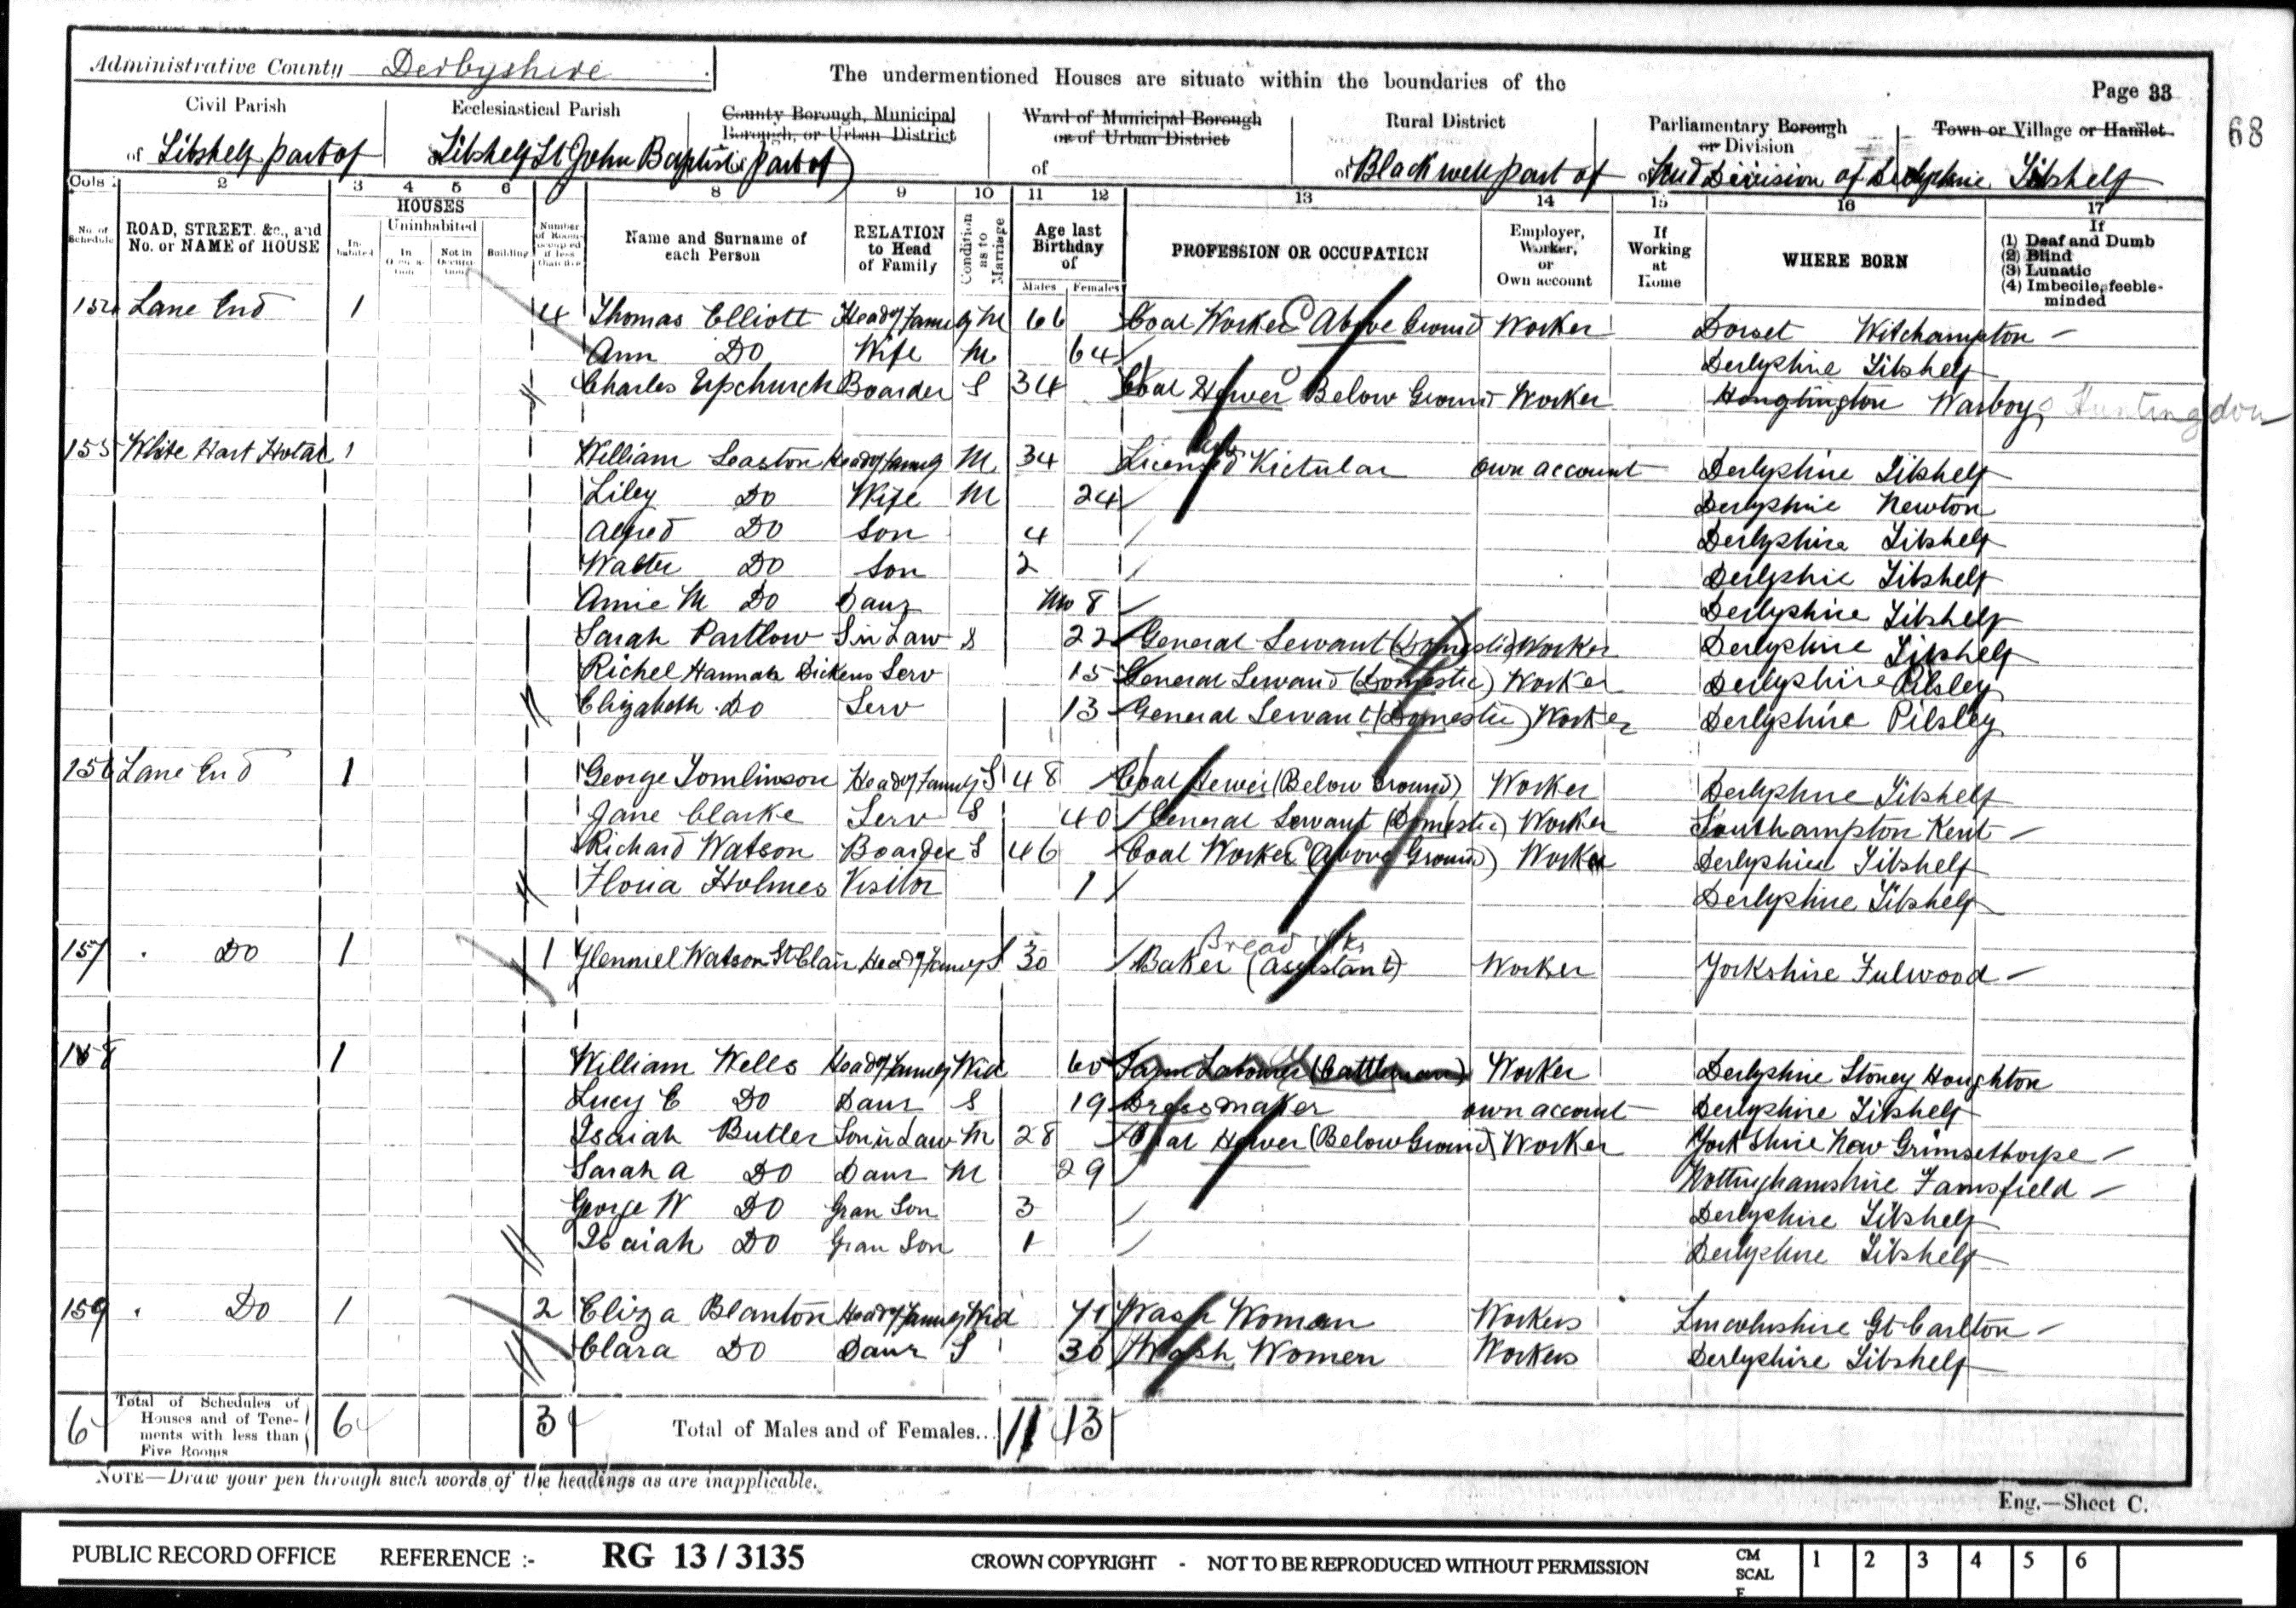 Administrative County Derbyshire
The undermentioned Houses are situate within the boundaries of the
Page 33
68
Civil Parish
of Tibshelf part of
Ecclesiastical Parish
Tibshelf St John Baptist (part of)
County Borough, Municipal Borough, or Urban District
Ward of Municipal Borough or of Urban District
of
Rural District
of Blackwell part of
Parliamentary Borough or Division
of Mid Division of Derbyshire
Town or Village or Hamlet
Tibshelf
Cols 2 3 4 5 6 8 9 10 11 12 13 14 15 16 17
No. of Schedule
ROAD, STREET, &c., and No. or NAME of HOUSE
HOUSES
Inhabited
Uninhabited
In Occupation
Not in Occupation
Building
Number of Rooms occupied if less than five
Name and Surname of each Person
RELATION to Head of Family
Condition as to Marriage
Age last Birthday of
Males Females
PROFESSION OR OCCUPATION
Employer, Worker, or Own account
If Working at Home
WHERE BORN
If
(1) Deaf and Dumb
(2) Blind
(3) Lunatic
(4) Imbecile, feeble-minded
154 Lane End 1 4 Thomas Elliott Head of Family M 66 Coal Worker Above Ground Worker Dorset Witchampton
Ann Do Wife M 64 Derbyshire Tibshelf
Charles Upchurch Boarder S 34 Coal Hewer Below Ground Worker Hongtington Warboys Huntingdon
155 White Hart Hotel 1 William Seaston Head of Family M 34 Licensed Victular own account Derbyshire Tibshelf
Liley Do Wife M 24 Derbyshire Newton
Alfred Do Son 4 Derbyshire Tibshelf
Walter Do Son 2 Derbyshire Tibshelf
Annie M Do Daur Mo 8 Derbyshire Tibshelf
Sarah Partlow S in Law S 22 General Servant (Domestic) Worker Derbyshire Tibshelf
Richel Hannah Dickens Serv 15 General Servant (Domestic) Worker Derbyshire Pilsley
Elizabeth Do Serv 13 General Servant (Domestic) Worker Derbyshire Pilsley
156 Lane End 1 George Tomlinson Head of Family S 48 Coal Hewer (Below Ground) Worker Derbyshire Tibshelf
Jane Clarke Serv S 40 General Servant (Domestic) Worker Southampton Kent
Richard Watson Boarder S 46 Coal Worker (Above Ground) Worker Derbyshire Tibshelf
Floria Holmes Visitor 1 Derbyshire Tibshelf
157 Do 1 1 Glenniel Watson St Clair Head of Family S 30 Bread Baker (Assistant) Worker Yorkshire Fulwood
158 1 William Wells Head of Family Wid 60 Farm Labourer (Cattleman) Worker Derbyshire Stoney Houghton
Lucy E Do Daur S 19 Dressmaker own account Derbyshire Tibshelf
Isaiah Butler Son in Law M 28 Coal Hewer (Below Ground) Worker Yorkshire New Grimsethorpe
Sarah A Do Daur M 29 Nottinghamshire Farnsfield
George W Do Gran Son 3 Derbyshire Tibshelf
Isaiah Do Gran Son 1 Derbyshire Tibshelf
159 Do 1 2 Eliza Blanton Head of Family Wid 71 Wash Woman Workers Lincolnshire Gt Carlton
Clara Do Daur S 30 Wash Women Workers Derbyshire Tibshelf
6 Total of Schedules of Houses and of Tenements with less than Five Rooms 6 3 Total of Males and of Females... 11 13
NOTE—Draw your pen through such words of the headings as are inapplicable.
Eng.—Sheet C.
PUBLIC RECORD OFFICE REFERENCE :- RG 13 / 3135 CROWN COPYRIGHT - NOT TO BE REPRODUCED WITHOUT PERMISSION CM SCALE 1 2 3 4 5 6